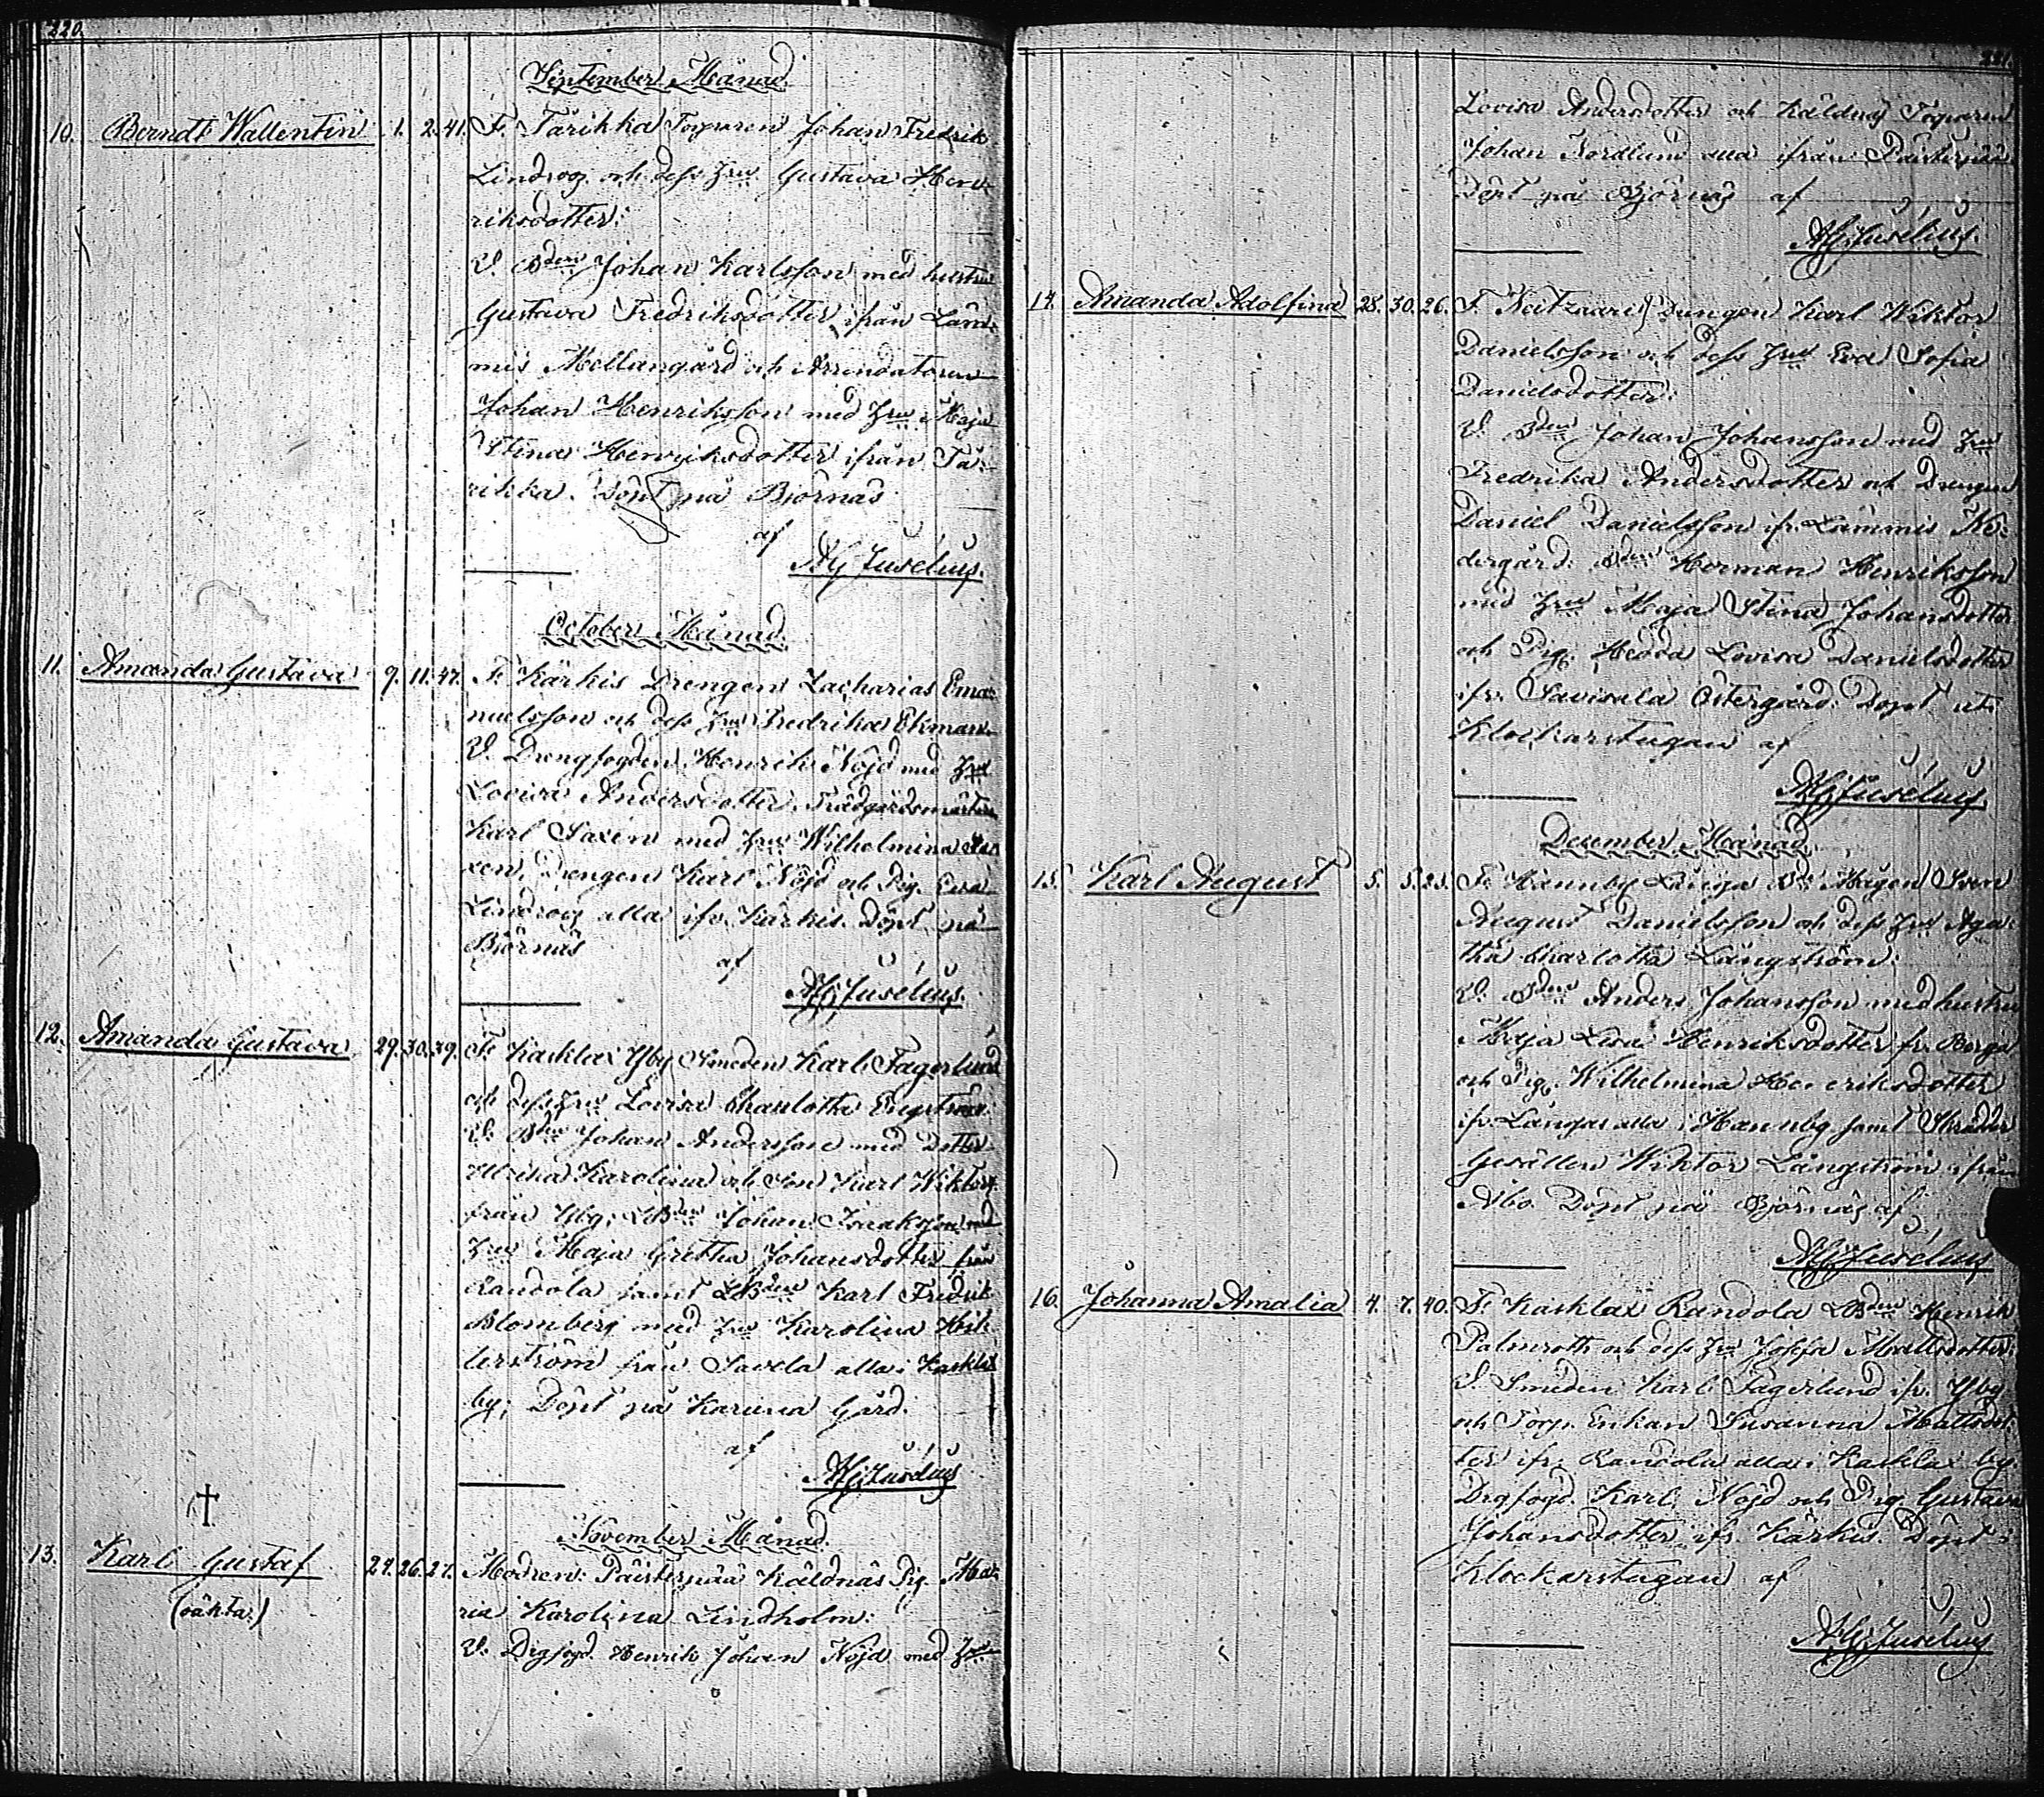 220.
September Månad.
10. Berndt Wallentin 1. 2. 41. F. Tärikka Torparen Johan Fredrik
Lindroos och dess Hru Gustava Hen-
riksdotter:
V. Bden Johan Karlsson med hustru
Gustava Fredriksdotter, ifrån Läm-
mis Mellangård och Arrendatoren
Johan Henriksson med Hru Maja
Stina Henriksdotter ifrån Tä-
rikka. Döpt på Björnäs
af
Juselius.
October Månad.
11. Amanda Gustava 9. 11. 47. F. Kärkis Drengen Zacharias Ema-
nuelsson och dess Hru Fredrika Ekman.
V. Drengfogden Henrik Nöjd med Hru
Lovisa Andersdotter, Trädgårdsmästare
Karl Saxen med Hru Wilhelmina Sa-
xen, Drengen Karl Nöjd och Pig. Eva
Lindroos alla ifr. Kärkis. Döpt på
Björnäs
af
Juselius.
12. Amanda Gustava 29. 30. 39. F. Kasklax Yby Smeden Karl Fagerlund
och dess Hru Lovisa Charlotta Engström.
V. Bden Johan Andersson med Dotter
Ulrika Karolina och Son Karl Wiktor
från Yby, LBden Johan Isaksson med
Hru Maja Gretha Johansdotter från
Randola samt LBden Karl Fredrik
Blomberg med Hru Karolina
från Savela alla i Kasklax
by; Döpt på Karuna Gård.
af
Juselius
November Månad.
†
13. Karl Gustaf 24. 26. 27. Modren: Päisterpää Käldnäs Pig. Ma-
(oäkta) ria Karolina Lindholm:
V. Drgfogd. Henrik Johan Nöjd med Hru
221.
Lovisa Andersdotter och Käldnäs Torparen
Johan Nordlund alla ifrån Päisterpää.
Döpt på Björnäs af
Juselius.
14. Amanda Adolfina 28. 30. 26. F. Drengen Karl Wiktor
Danielsson och dess Hru Eva Sofia
Danielsdotter:
V. Bden Johan Johansson med Hru
Fredrika Andersdotter och Drengen
Daniel Danielsson ifr. Lämmis Ne-
dergård. Bden Herman Henriksson
med Hru Maja Stina Johansdotter
och Pig. Hedda Lovisa Danielsdotter
ifr. Savisala Östergård. Döpt uti
Klockarstugan af
Juselius.
December Månad.
15. Karl August 5. 5. 25. F. Hännby Långa Bde Mågen Sven
August Danielsson och dess Hru Aga-
tha Charlotta Långström:
V. Bden Anders Johansson med hustru
Maja Lisa Henriksdotter fr. Borga
och Pig. Wilhelmina Henriksdotter
ifr. Långas alla i Hannby samt Skräddar
Gesällen Wiktor Långström ifrån
Åbo. Döpt på Björnäs af
Juselius
16. Johanna Amalia 4. 7. 40. F. Kasklax Randola LBden Henrik
Palmroth och dess Hru Josefa Mattsdotter:
V. Smeden Karl Fagerlund ifr. Yby
och Torp. Enkan Susanna Mattsdot-
ter ifr. Randola alla i Kasklax by.
Drgfogd. Karl Nöjd och Pig. Gustava
Johansdotter ifr. Kärkis. Döpt i
Klockarstugan af
Juselius